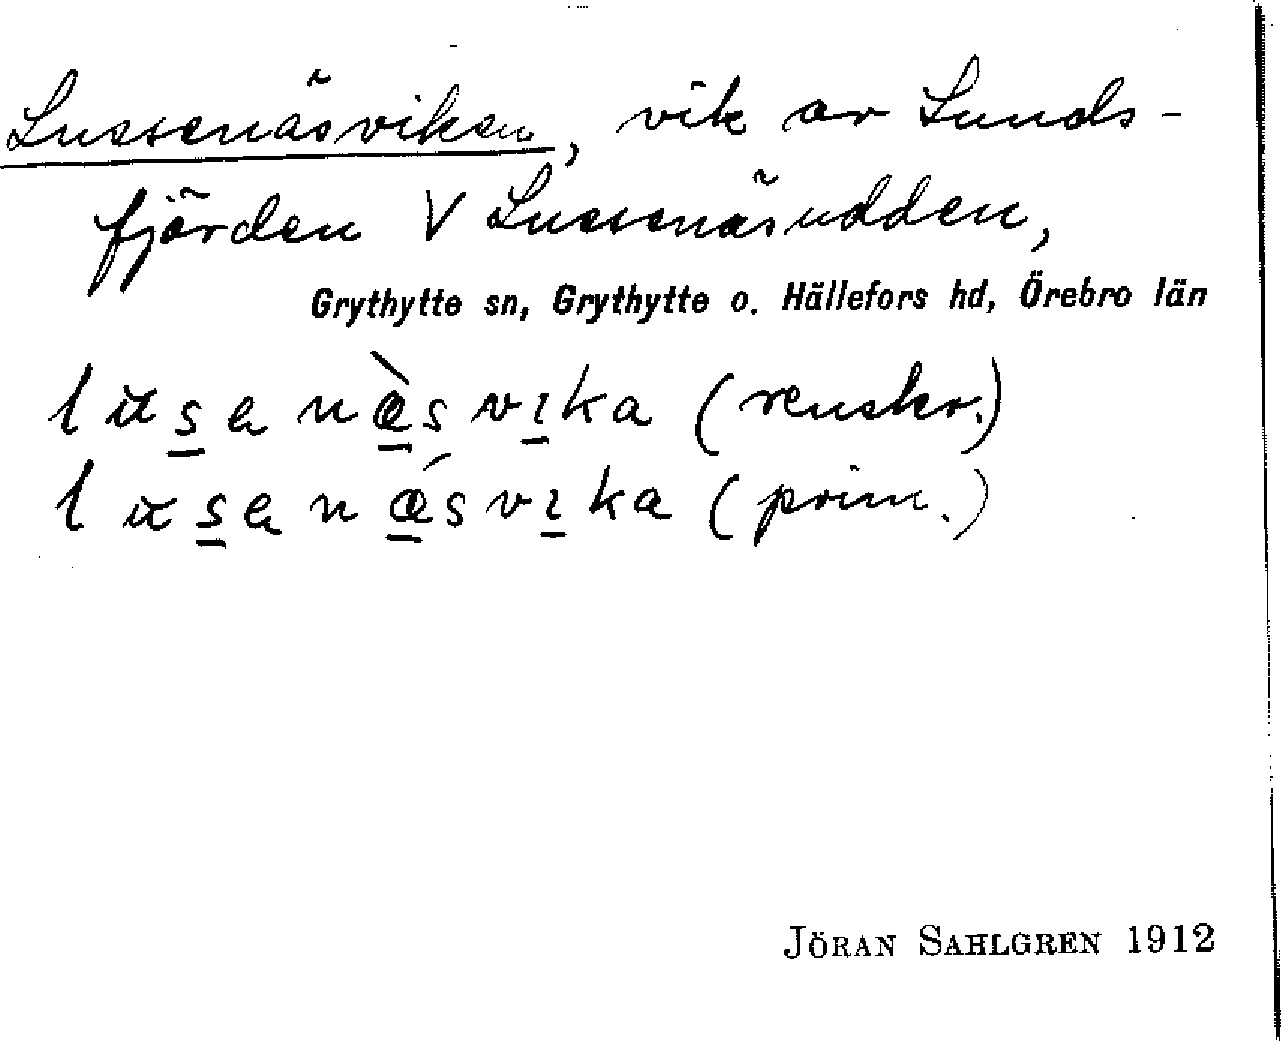 Lussenäsviken, vik av Sunds-
fjörden V Lussenäsudden,
Grythytte sn, Grythytte o. Hällefors hd, Örebro län
lusa næ̀svɩka (renskr.)
lusa nǽsvɩka (prim.)
JÖRAN SAHLGREN 1912